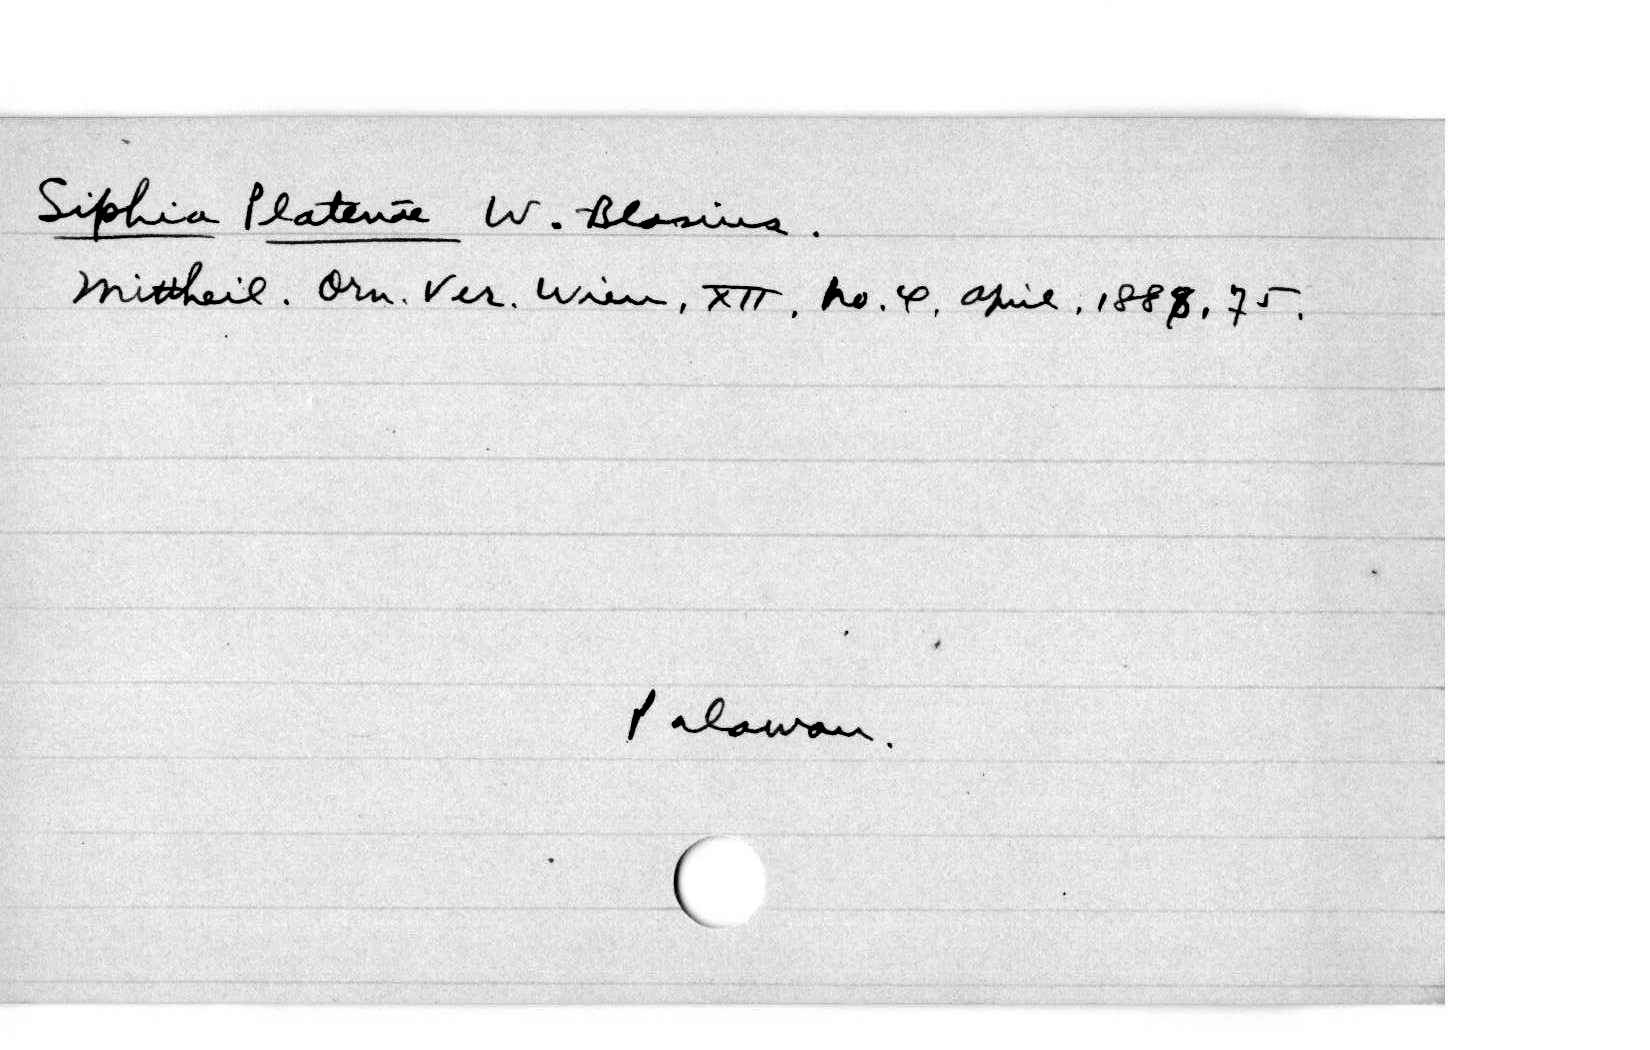 Siphia Platenae W. Blasius.
Mittheil. Orn. Ver. Wien, XII, No. 4, April, 1888, 75.
Palawan.